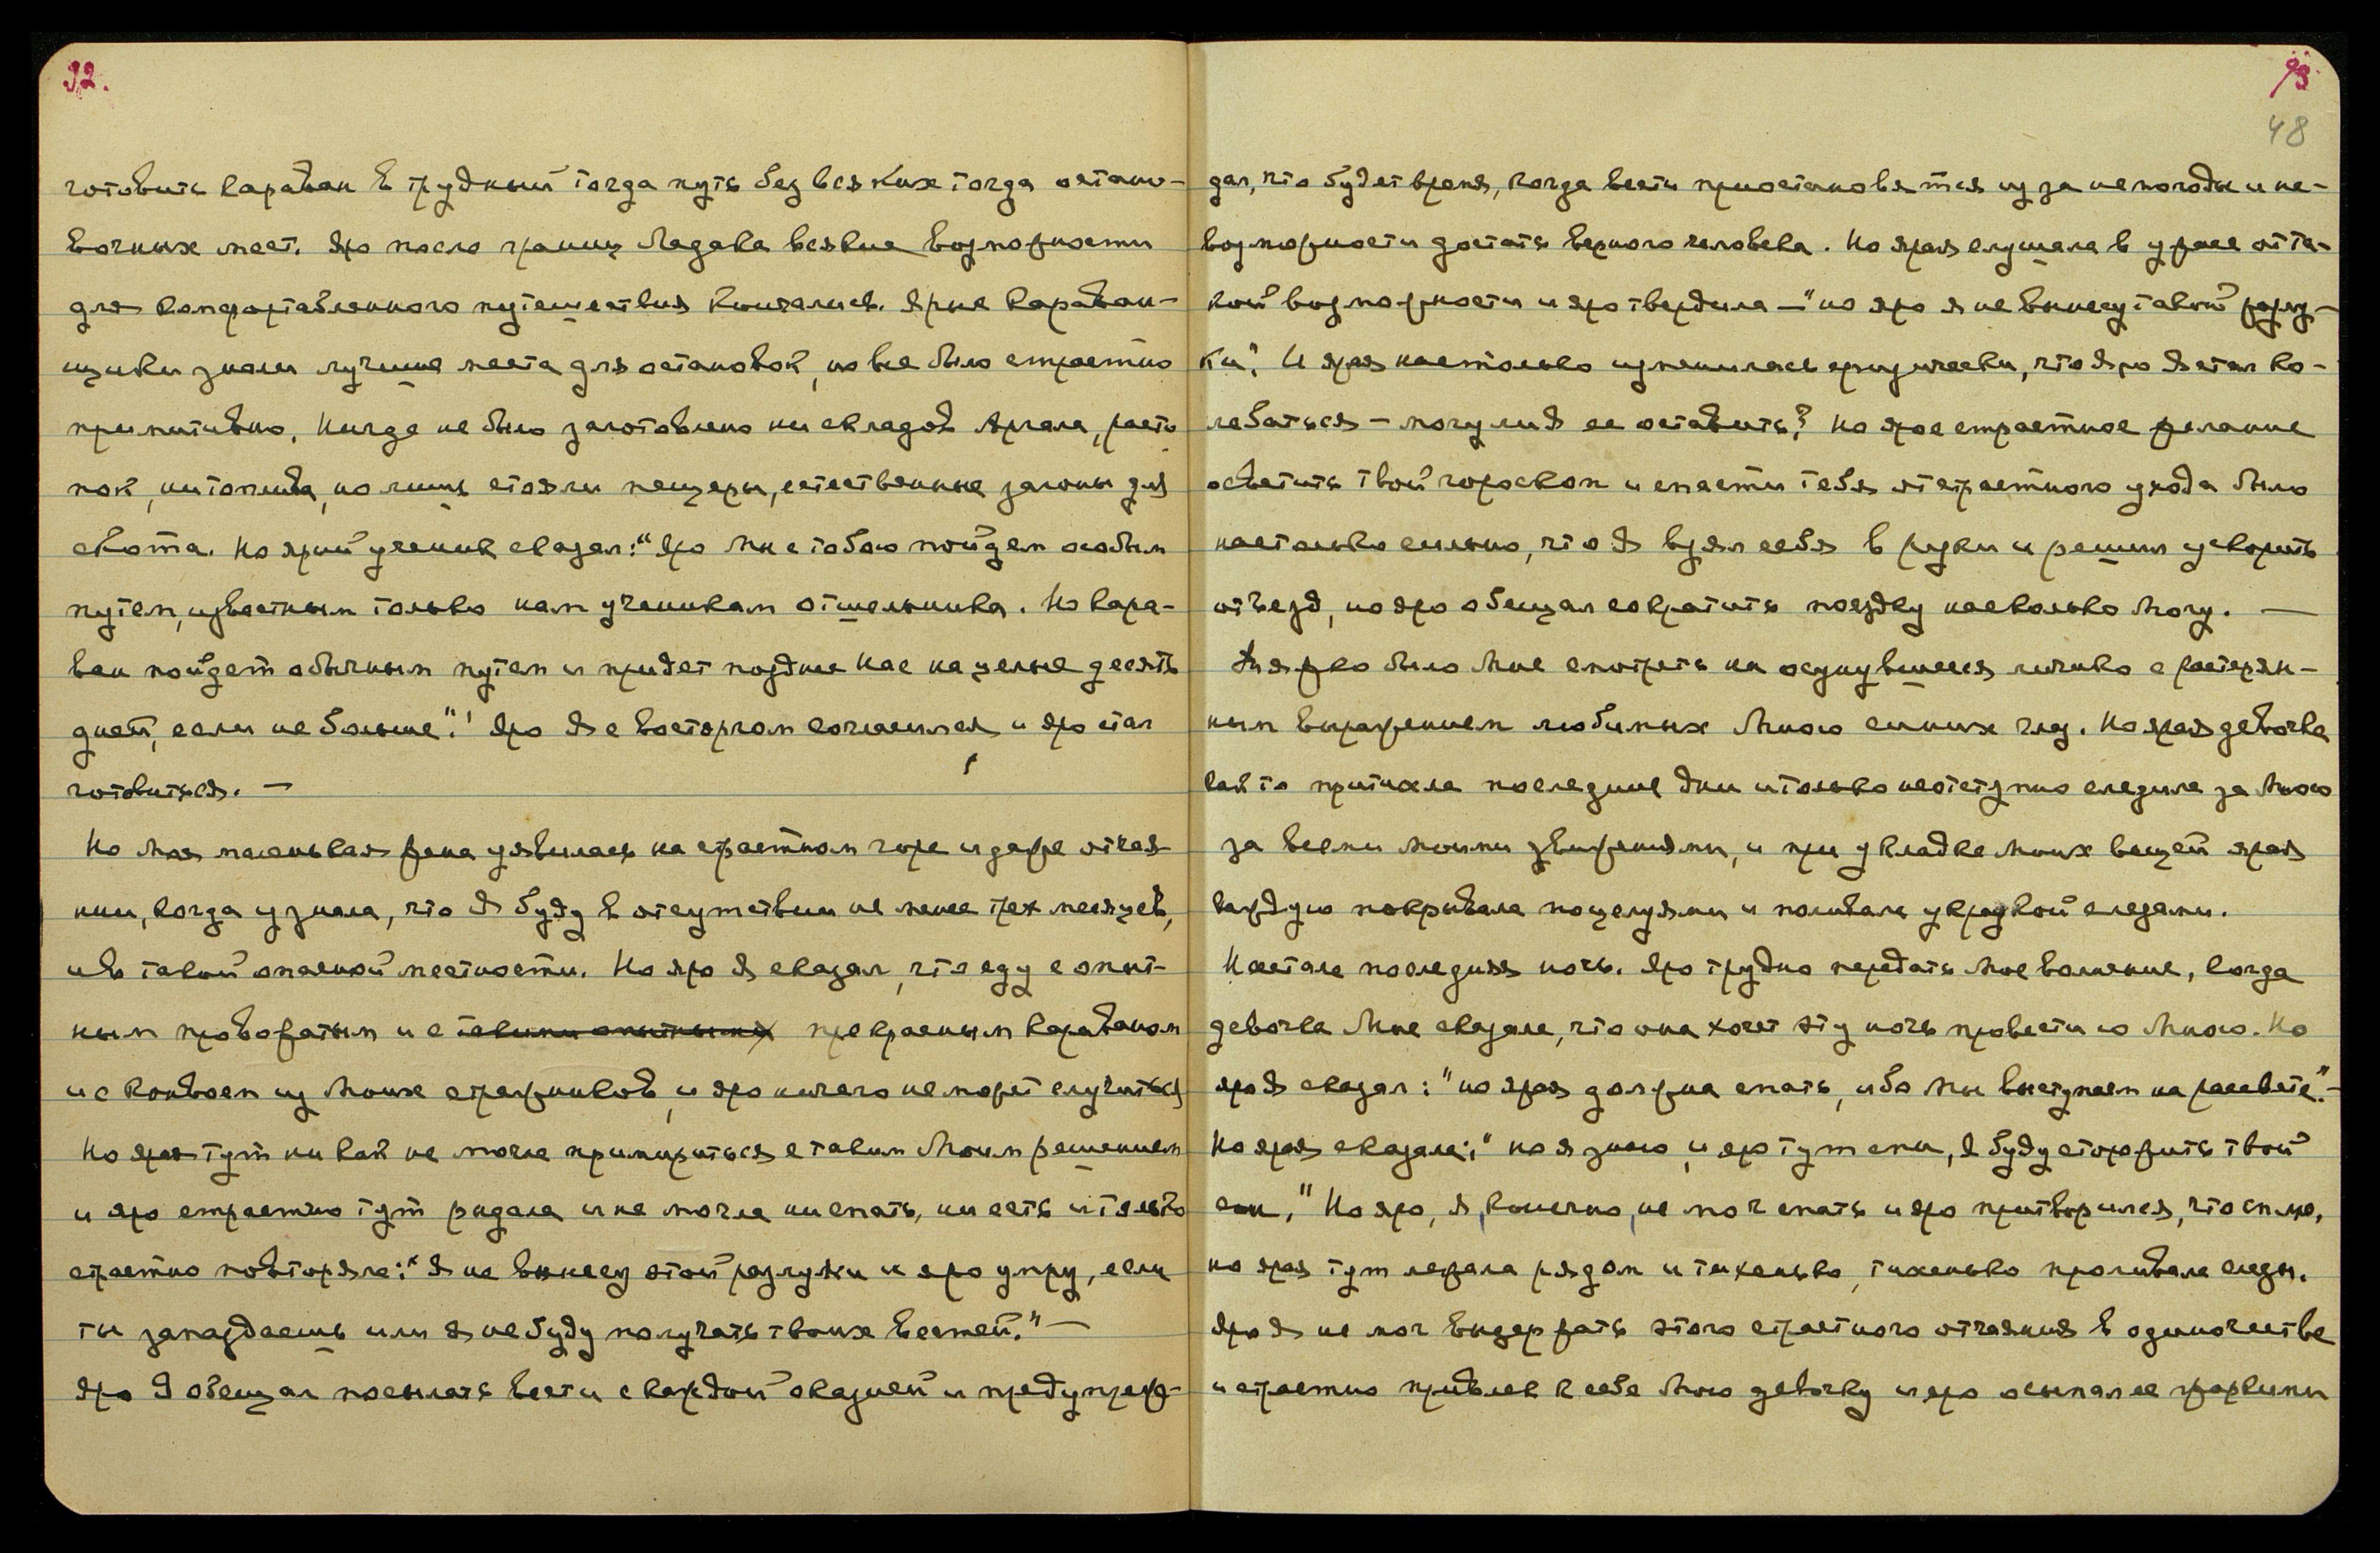 92.
готовить караван в трудный тогда путь без всяких тогда остано-
вочных мест. Яро после границ Ладака всякие возможности
для комфортабленного путешествия кончались. Ярые караван-
щики знали лучшие места для остановок, но все было страстно
примитивно. Нигде не было заготовлено ни складов Аргала, раст
пок, ни топлива, но лишь стояли пещеры, естественные загоны для
скота. Но ярый ученик сказал: "Яро мы с тобою пойдем особым
путем, известным только нам ученикам отшельника. Но кара-
ван пойдет обычным путем и придет позднее нас на целые десять
дней, если не больше"! Яро Я с восторгом согласился и яро стал
готовиться. —
Но моя маленькая жена уявилась на страстном горе и даже отчая-
нии, когда узнала, что Я буду в отсутствии не менее трех месяцев,
и в такой опасной местности. Но яро Я сказал, что еду с опыт-
ным провожатым и с такими опытными прекрасным караваном
и с конвоем из Моих стражников, и яро ничего не может случиться
Но ярая тут никак не могла примириться с таким Моим решением
и яро страстно тут рыдала и не могла ни спать, ни есть и только
страстно повторяла: "Я не вынесу этой разлуки и яро умру, если
ты запаздаешь или я не буду получать твоих вестей." —
Яро Я обещал посылать вести с каждой оказией и предупреж-
93
48
дал, что будет время, когда вести приостановятся из за непогоды и не-
возможности достать верного человека. Но ярая слушала в ужасе от та-
кой возможности и яро твердила — "но яро я не вынесу такой разлу-
ки". И ярая настолько изменилась физически, что яро Я стал ко-
лебаться – могу ли Я ее оставить? Но ярое страстное желание
осветить твой гороскоп и спасти тебя от страстного ухода было
настолько сильно, что Я взял себя в руки и решил ускорить
отъезд, но яро обещал сократить поездку насколько Могу. —
Тяжко было Мне смотреть на осунувшееся личико с растерян-
ным выражением любимых Мною синих глаз. Но ярая девочка
как то притихла последние дни и только неотступно следила за Мною
за всеми Моими движениями, и при укладке Моих вещей ярая
каждую покрывала поцелуями и поливала украдкой слезами.
Настала последняя ночь. Яро трудно передать Мое волнение, когда
девочка Мне сказала, что она хочет эту ночь провести со Мною. Но
яро Я сказал: "но ярая должна спать, ибо Мы выступаем на рассвете". –
Но ярая сказала: "но я знаю, и яро тут спи, я буду сторожить твой
сон." Но яро, Я, конечно, не мог спать и яро притворился, что сплю,
но ярая тут лежала рядом и тихенько, тихенько проливала слезы.
Яро Я не мог выдержать этого страстного отчаяния в одиночестве
и страстно привлек к себе Мою девочку и яро осыпал ее жаркими